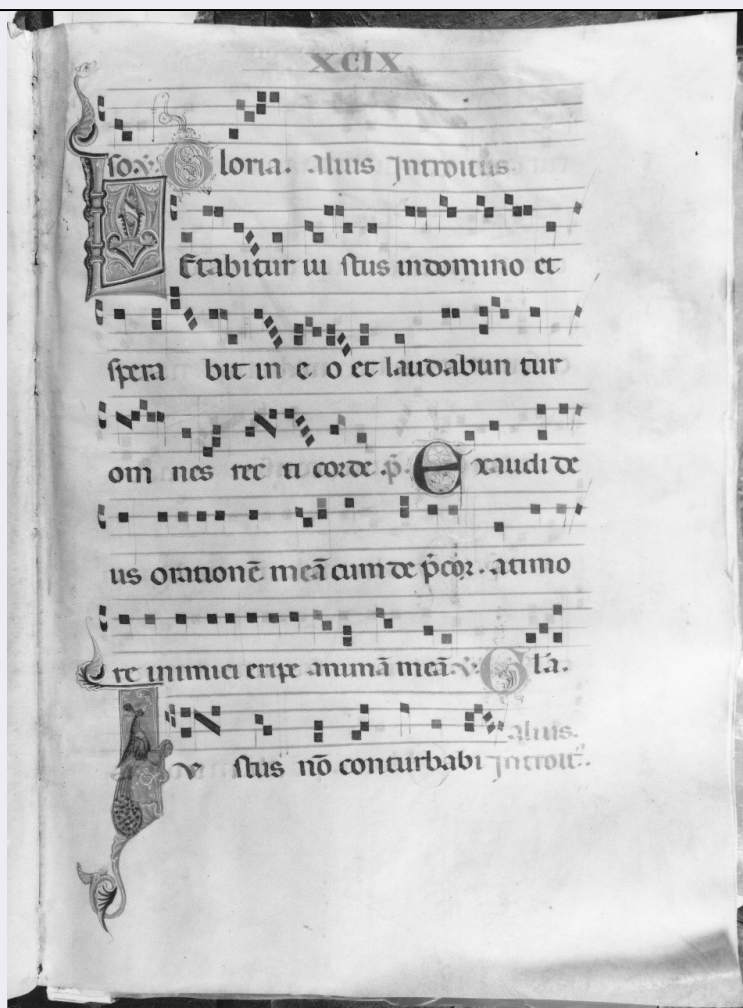 XCIX
so. ℣. Gloria. Alius Introitus
Letabitur iu stus in domino et
spera bit in e o et laudabun tur
om nes rec ti corde .p̄. Exaudi de
us orationē meā cum de p̄cor. a timo
re inimici eripe animā meā. ℣. Gl̄a.
alius.
Iu stus nō conturbabi Introit᷒.